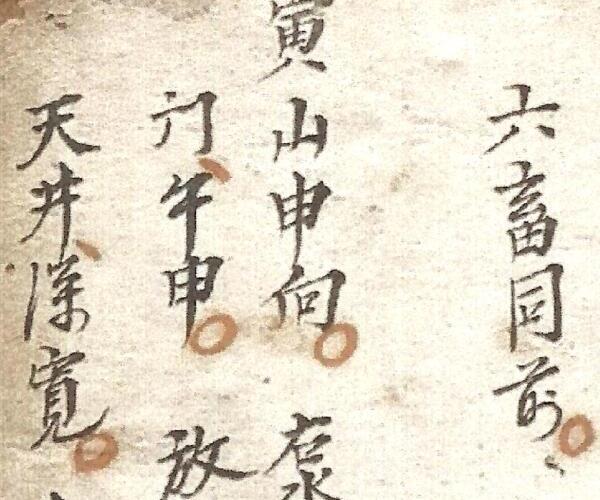 六畜同前
寅山申向 右水
门午申 放
天井深寬